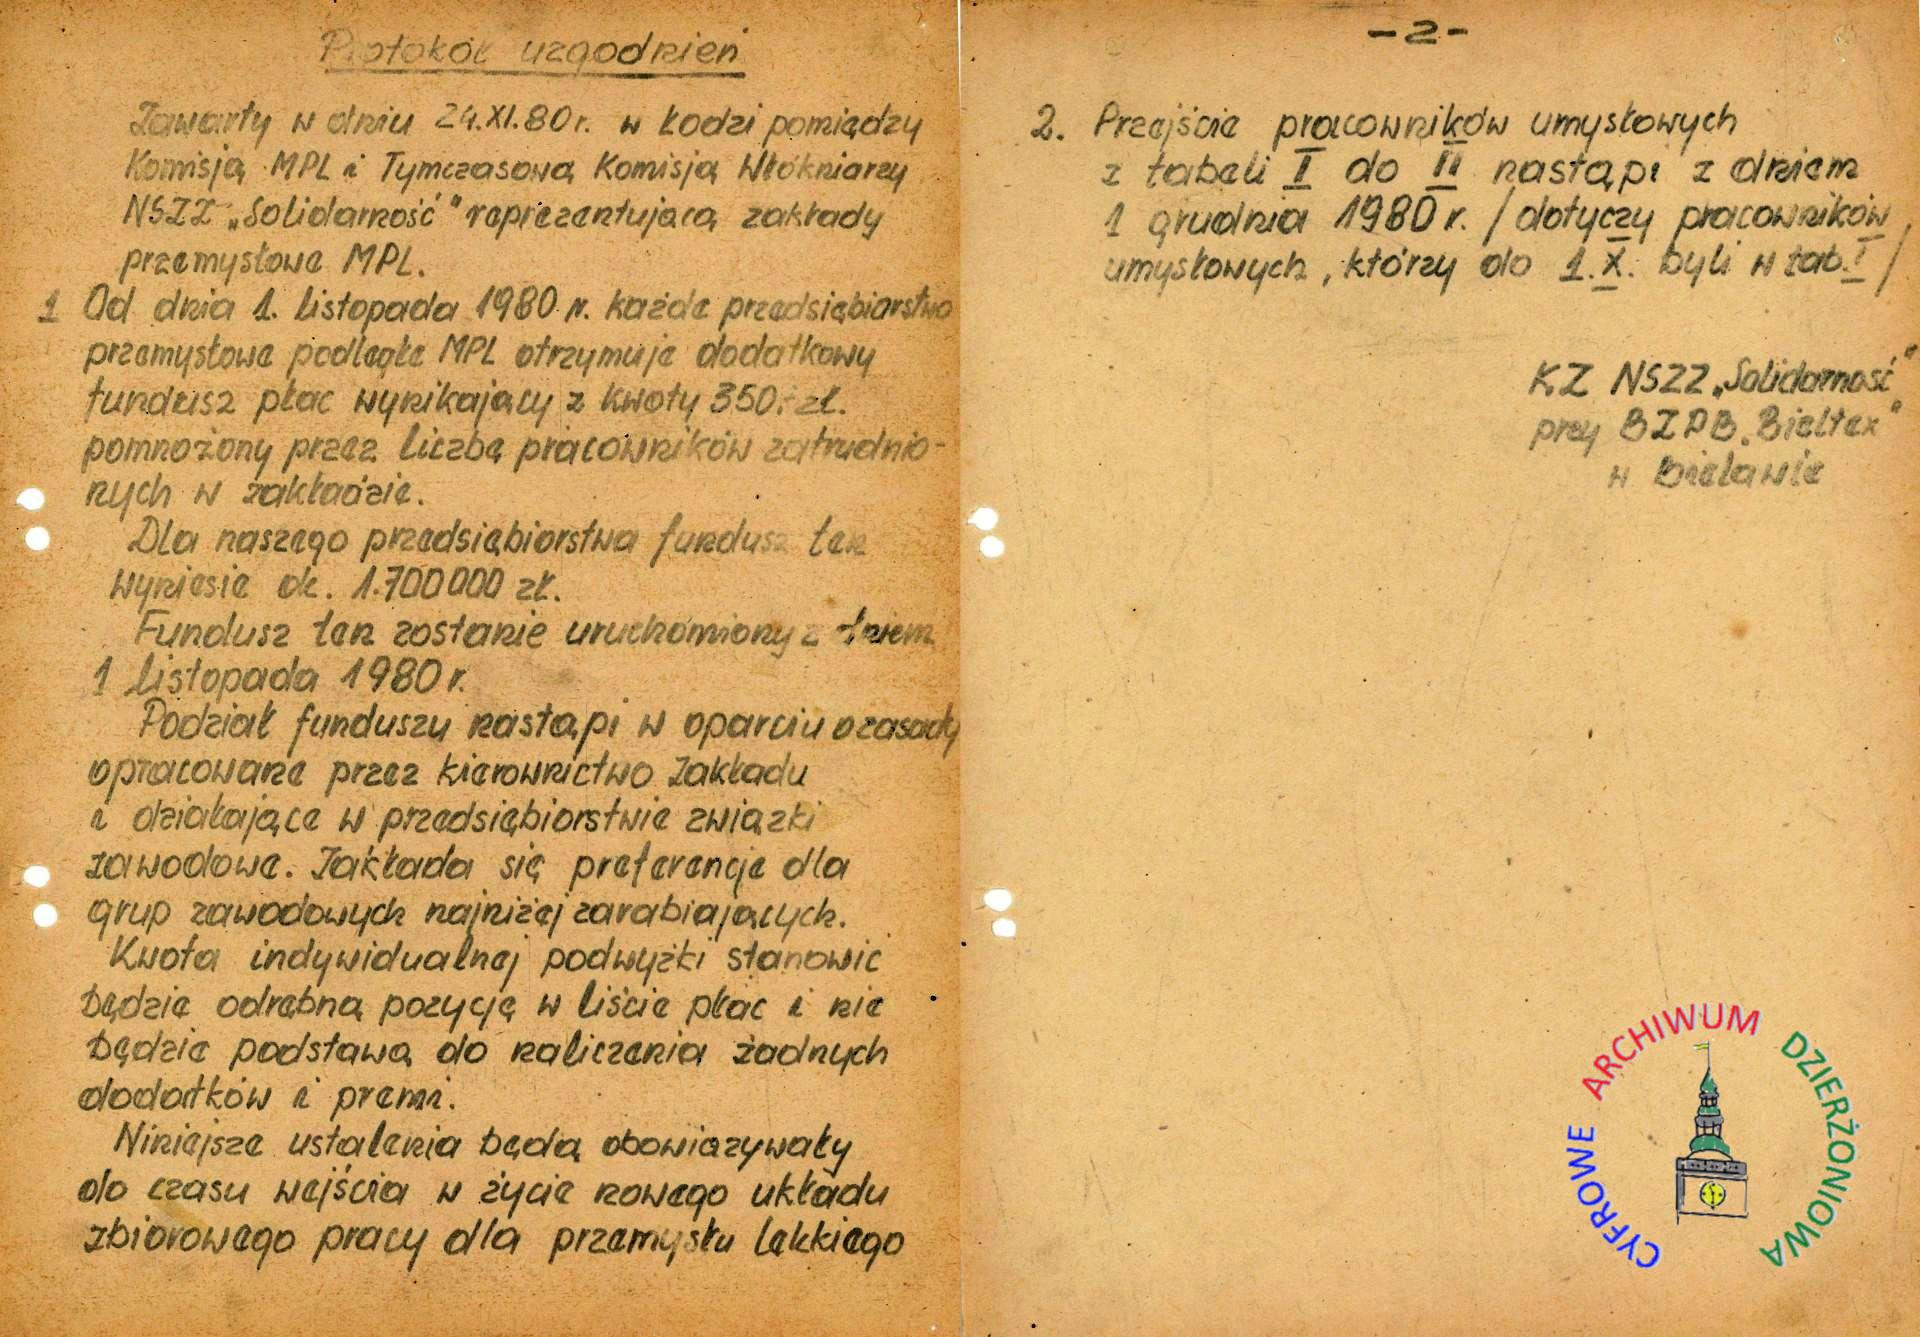 Protokół uzgodnień
Zawarty w dniu 24.XI.80r. w Łodzi pomiędzy
Komisją MPL i Tymczasową Komisją Włókniarzy
NSZZ „Solidarność" reprezentującą zakłady
przemysłowe MPL.
1 Od dnia 1. listopada 1980 r. każde przedsiębiorstwo
przemysłowe podległe MPL otrzymuje dodatkowy
fundusz płac wynikający z kwoty 350,- zł.
pomnożony przez liczbę pracowników zatrudnio-
nych w zakładzie.
Dla naszego przedsiębiorstwa fundusz ten
wyniesie ok. 1.700000 zł.
Fundusz ten zostanie uruchomiony z dniem
1 listopada 1980 r.
Podział funduszu nastąpi w oparciu o zasady
opracowane przez kierownictwo Zakładu
i działające w przedsiębiorstwie związki
zawodowe. Zakłada się preferencje dla
grup zawodowych najniżej zarabiających.
Kwota indywidualnej podwyżki stanowić
będzie odrębną pozycję w liście płac i nie
będzie podstawą do naliczenia żadnych
dodatków i premi.
Niniejsze ustalenia będą obowiązywały
do czasu wejścia w życie nowego układu
zbiorowego pracy dla przemysłu lekkiego
-2-
2. Przejście pracowników umysłowych
z tabeli I do II nastąpi z dniem
1 grudnia 1980 r. /dotyczy pracowników
umysłowych, którzy do 1.X. byli w tab.I/
KZ NSZZ „Solidarność"
przy BZPB „Bieltex"
w Bielawie
CYFROWE ARCHIWUM DZIERŻONIOWA